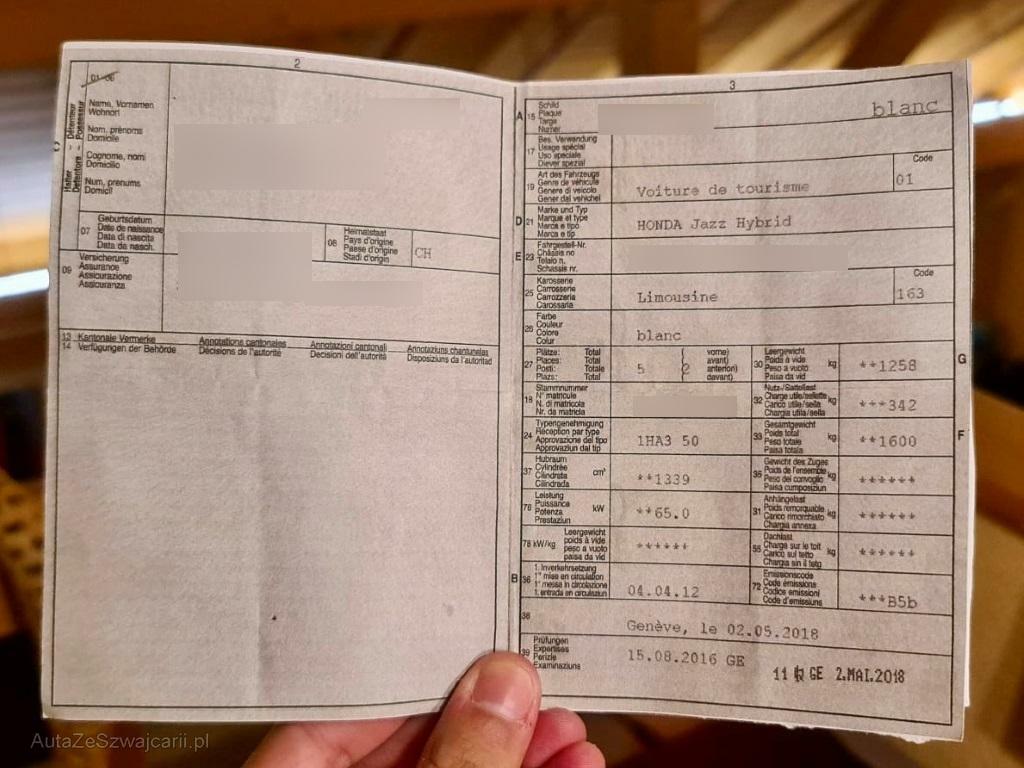 2
01-06
Halter
Détenteur
Detentore
Possessur
Name, Vornamen
Wohnort
Nom, prénoms
Domicile
Cognome, nomi
Domicilio
Num, prenums
Domicil
07
Geburtsdatum
Date de naissance
Data di nascita
Data da nasch.
08
Heimatstaat
Pays d'origine
Paese d'origine
Stadi d'origin
CH
09
Versicherung
Assurance
Assicurazione
Assicuranza
13 Kantonale Vermerke Annotations cantonales Annotazioni cantonali Annotaziuns chantunalas
14 Verfügungen der Behörde Décisions de l'autorité Decisioni dell'autorità Disposiziuns da l'autoritad
3
A
15
Schild
Plaque
Targa
Numer
blanc
17
Bes. Verwendung
Usage spécial
Uso speciale
Diever spezial
19
Art des Fahrzeugs
Genre de véhicule
Genere di veicolo
Gener dal vehichel
Voiture de tourisme
Code
01
D
21
Marke und Typ
Marque et type
Marca e tipo
Marca e tip
HONDA Jazz Hybrid
E
23
Fahrgestell-Nr.
Châssis no
Telaio n.
Schassis nr.
25
Karosserie
Carrosserie
Carrozzeria
Carossaria
Limousine
Code
163
26
Farbe
Couleur
Colore
Colur
blanc
27
Plätze: Total
Places: Total
Posti: Totale
Plazs: Total
5
2
vorne)
avant)
anteriori)
davant)
30
Leergewicht
Poids à vide
Peso a vuoto
Paisa da vid
kg
**1258
G
18
Stammnummer
N° matricule
N. di matricola
Nr. da matricla
32
Nutz-/Sattellast
Charge utile/sellette
Carico utile/sella
Chargia utila/sella
kg
***342
24
Typengenehmigung
Réception par type
Approvazione del tipo
Approvaziun dal tip
1HA3 50
33
Gesamtgewicht
Poids total
Peso totale
Paisa totala
kg
**1600
F
37
Hubraum
Cylindrée
Cilindrata
Cilindrada
cm³
**1339
35
Gewicht des Zuges
Poids de l'ensemble
Peso del convoglio
Paisa cumposiziun
kg
******
76
Leistung
Puissance
Potenza
Prestaziun
kW
**65.0
31
Anhängelast
Poids remorquable
Carico rimorchiato
Chargia annexa
kg
******
78 kW/kg
Leergewicht
poids à vide
peso a vuoto
paisa da vid
******
55
Dachlast
Charge sur le toit
Carico sul tetto
Chargia sin il tetg
kg
******
B
36
1. Inverkehrsetzung
1re mise en circulation
1a messa in circolazione
1. entrada en circulaziun
04.04.12
72
Emissionscode
Code émissions
Codice emissioni
Code d'emissiuns
***B5b
38
Genève, le 02.05.2018
39
Prüfungen
Expertises
Perizie
Examinaziuns
15.08.2016 GE
GE 2.MAI.2018
AutaZeSzwajcarii.pl